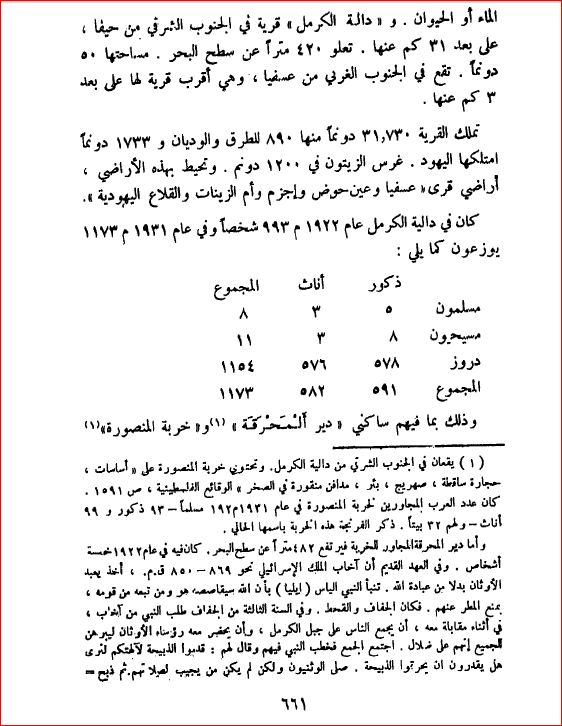 الماء أو الحيوان . و « دالية الكرمل » قرية في الجنوب الشرقي من حيفا ،
على بعد ٣١ كم عنها . تعلو ٤٢٠ متراً عن سطح البحر . مساحتها ٥٠
دونماً . تقع في الجنوب الغربي من عسفيا ، وهي أقرب قرية لها على بعد
٣ كم عنها .
تملك القرية ٣١,٧٣٠ دونماً منها ٨٩٠ للطرق والوديان و ١٧٣٣ دونماً
امتلكها اليهود . غرس الزيتون في ١٢٠٠ دونم . وتحيط بهذه الأراضي ،
أراضي قرى « عسفيا وعين حوض وإجزم وأم الزينات والقلاع اليهودية » .
كان في دالية الكرمل عام ١٩٢٢ م ٩٩٣ شخصاً وفي عام ١٩٣١ م ١١٧٣
يوزعون كما يلي :
ذكور أناث المجموع
مسلمون ٥ ٣ ٨
مسيحيون ٨ ٣ ١١
دروز ٥٧٨ ٥٧٦ ١١٥٤
المجموع ٥٩١ ٥٨٢ ١١٧٣
وذلك بما فيهم ساكني « دير اَلْمَحْرَقَة » (١) و « خربة المنصورة » (١)
( ١ ) يقعان في الجنوب الشرقي من دالية الكرمل. وتحتوي خربة المنصورة على « أساسات ،
حجارة ساقطة ، صهريج ، بئر ، مدافن منقورة في الصخر » الوقائع الفلسطينية ، ص ١٥٩١ .
كان عدد العرب المجاورين لخربة المنصورة في عام ١٩٣١م ١٩٢ مسلماً – ٩٣ ذكور و ٩٩
أناث – ولهم ٣٢ بيتاً . ذكر الفرنجة هذه الخربة باسمها الحالي .
وأما دير المحرقة المجاور للخربة فيرتفع ٤٨٢ متراً عن سطح البحر . كان فيه في عام ١٩٢٢ خمسة
أشخاص . وفي العهد القديم أن آخاب الملك الإسرائيلي نحو ٨٦٩ – ٨٥٠ ق.م. ، أخذ يعبد
الأوثان بدلا من عبادة الله . تنبأ النبي الياس ( إيليا ) بأن الله سيقاصصه هو ومن تبعه من قومه ،
بمنع المطر عنهم . فكان الجفاف والقحط . وفي السنة الثالثة من الجفاف طلب النبي من آخاب ،
في أثناء مقابلة معه ، أن يجمع الناس على جبل الكرمل ، وأن يحضر معه رؤساء الأوثان ليبرهن
للجميع إنهم على ضلال . اجتمع الجمع فخطب النبي فيهم وقال لهم : قدموا الذبيحة لآلهتكم لنرى
هل يقدرون ان يحرقوا الذبيحة . صلى الوثنيون ولكن لم يكن من يجيب لصلاتهم. ثم ذبح =
٦٦١